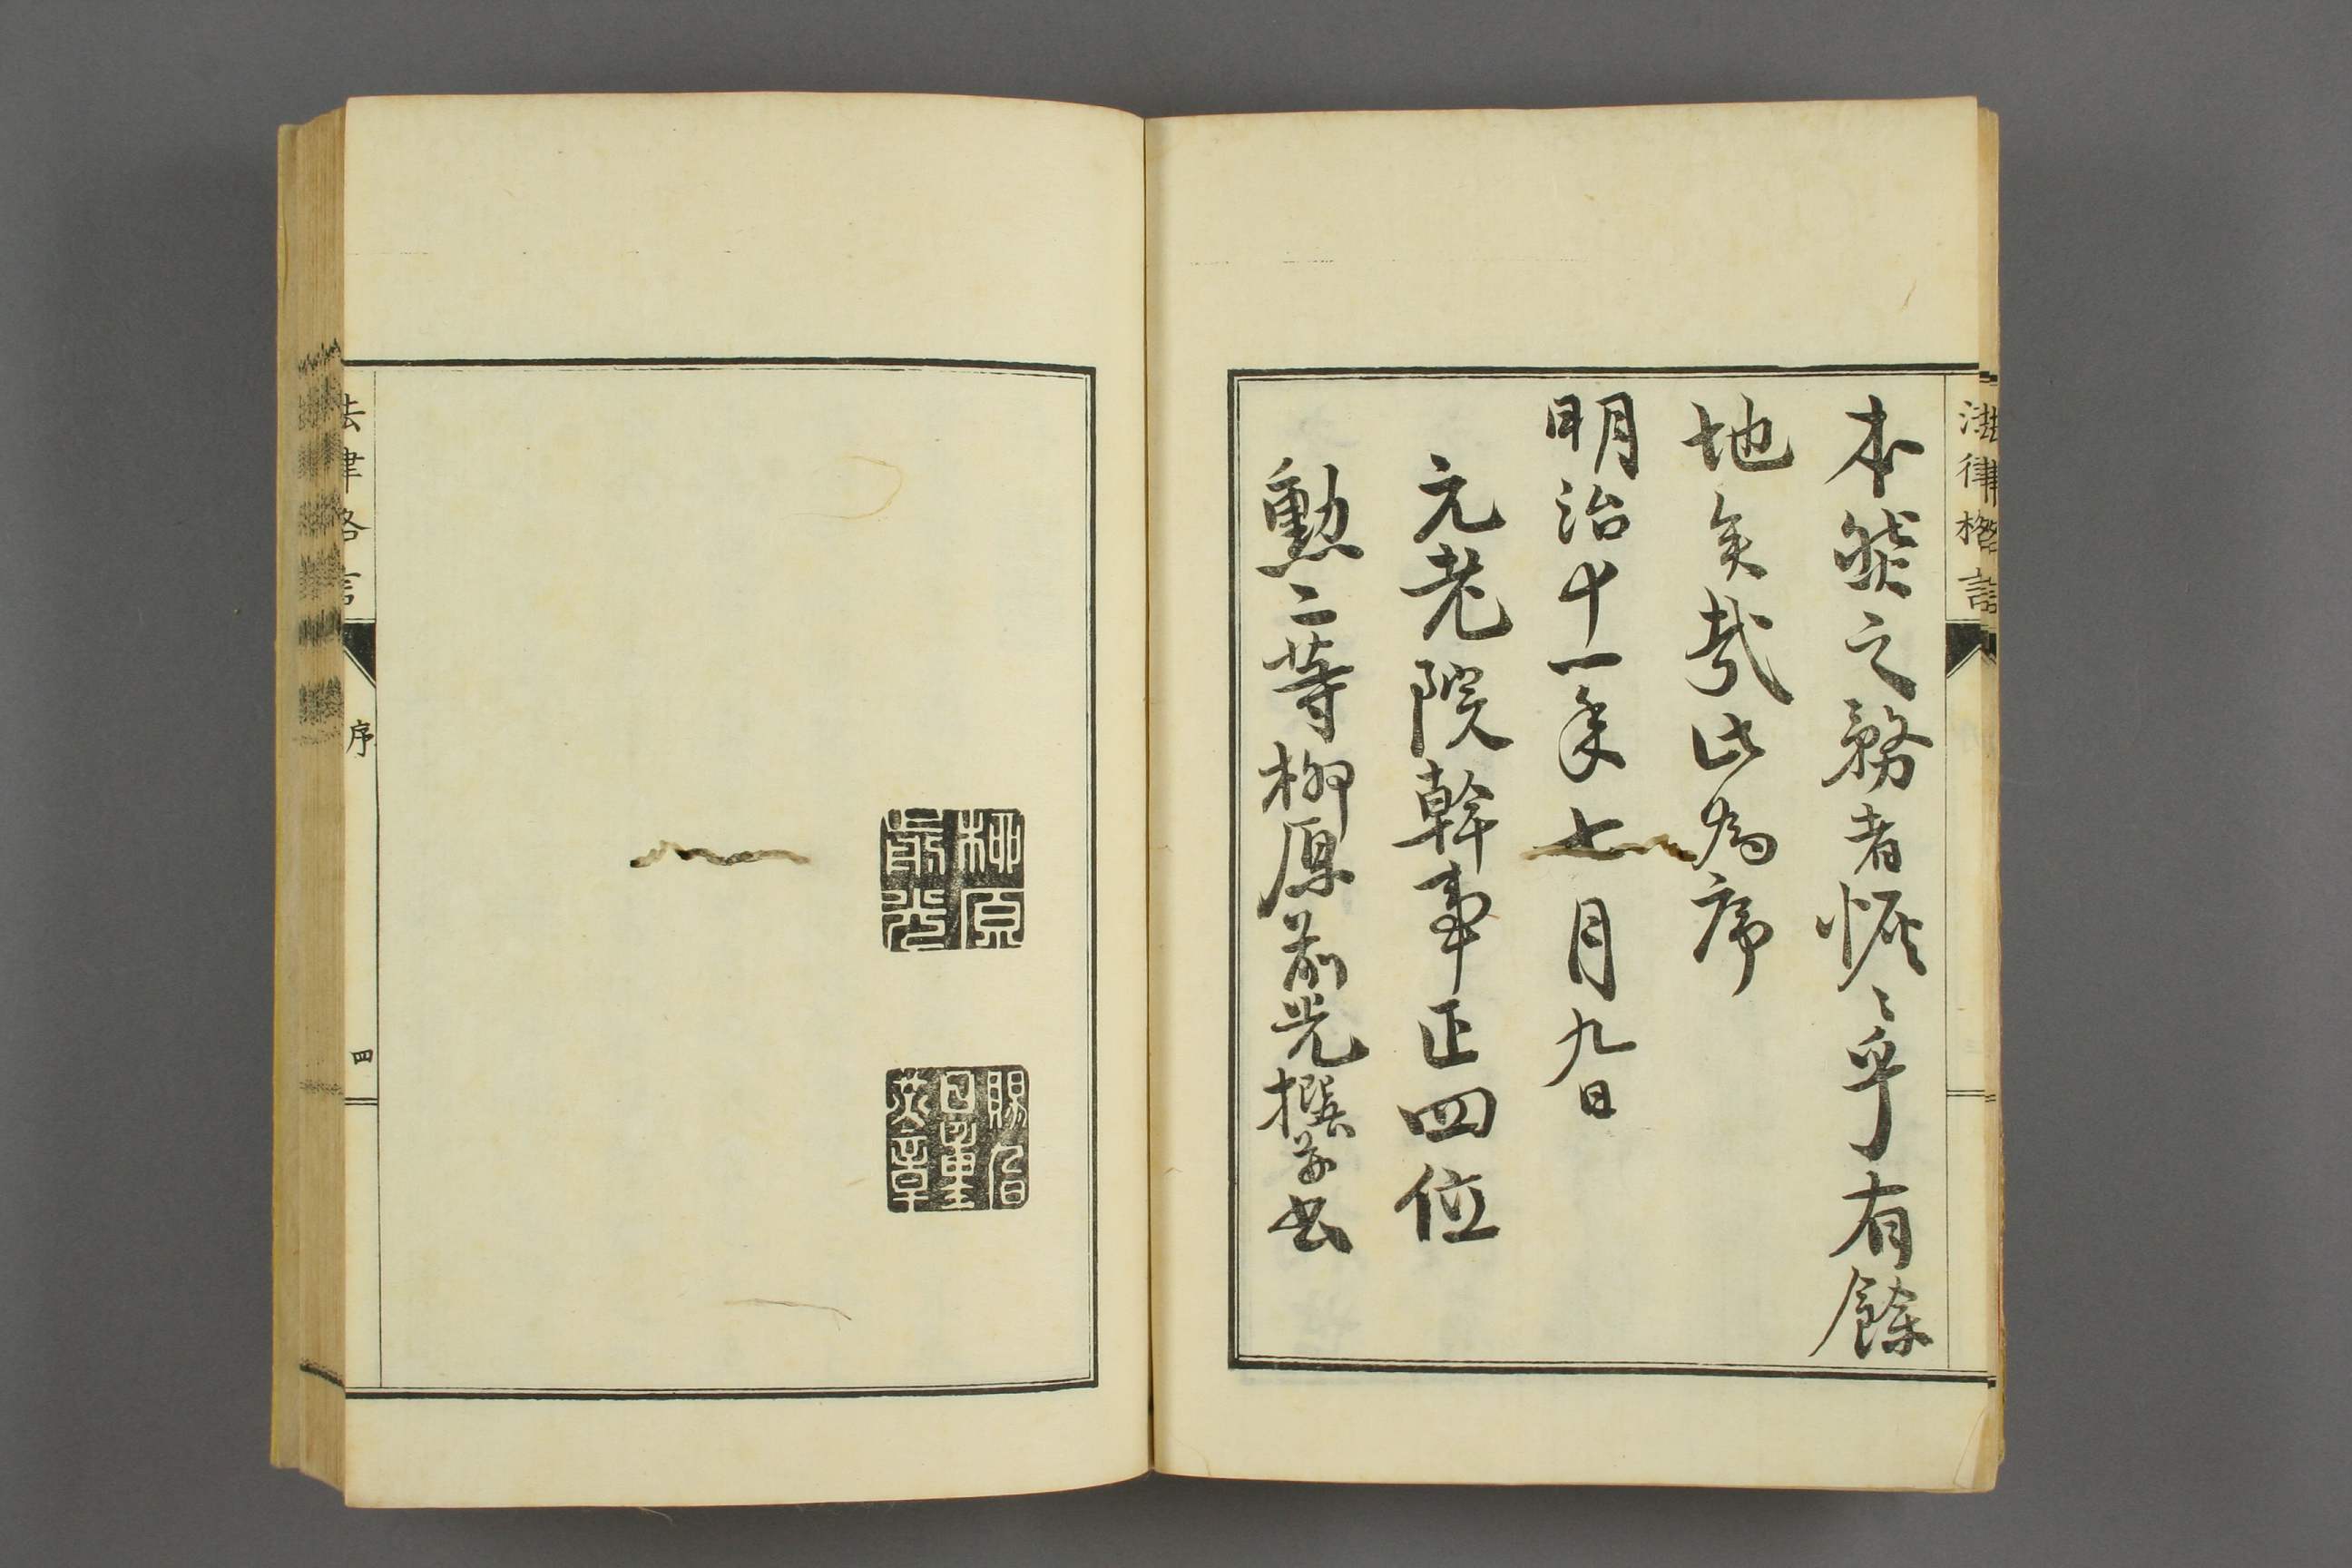 法律格言
本然之務者恢〻乎有餘
地矣哉此為序
明治十一年七月九日
元老院幹事正四位
勲二等柳原前光撰并書
柳原
前光
法律格言
序
四